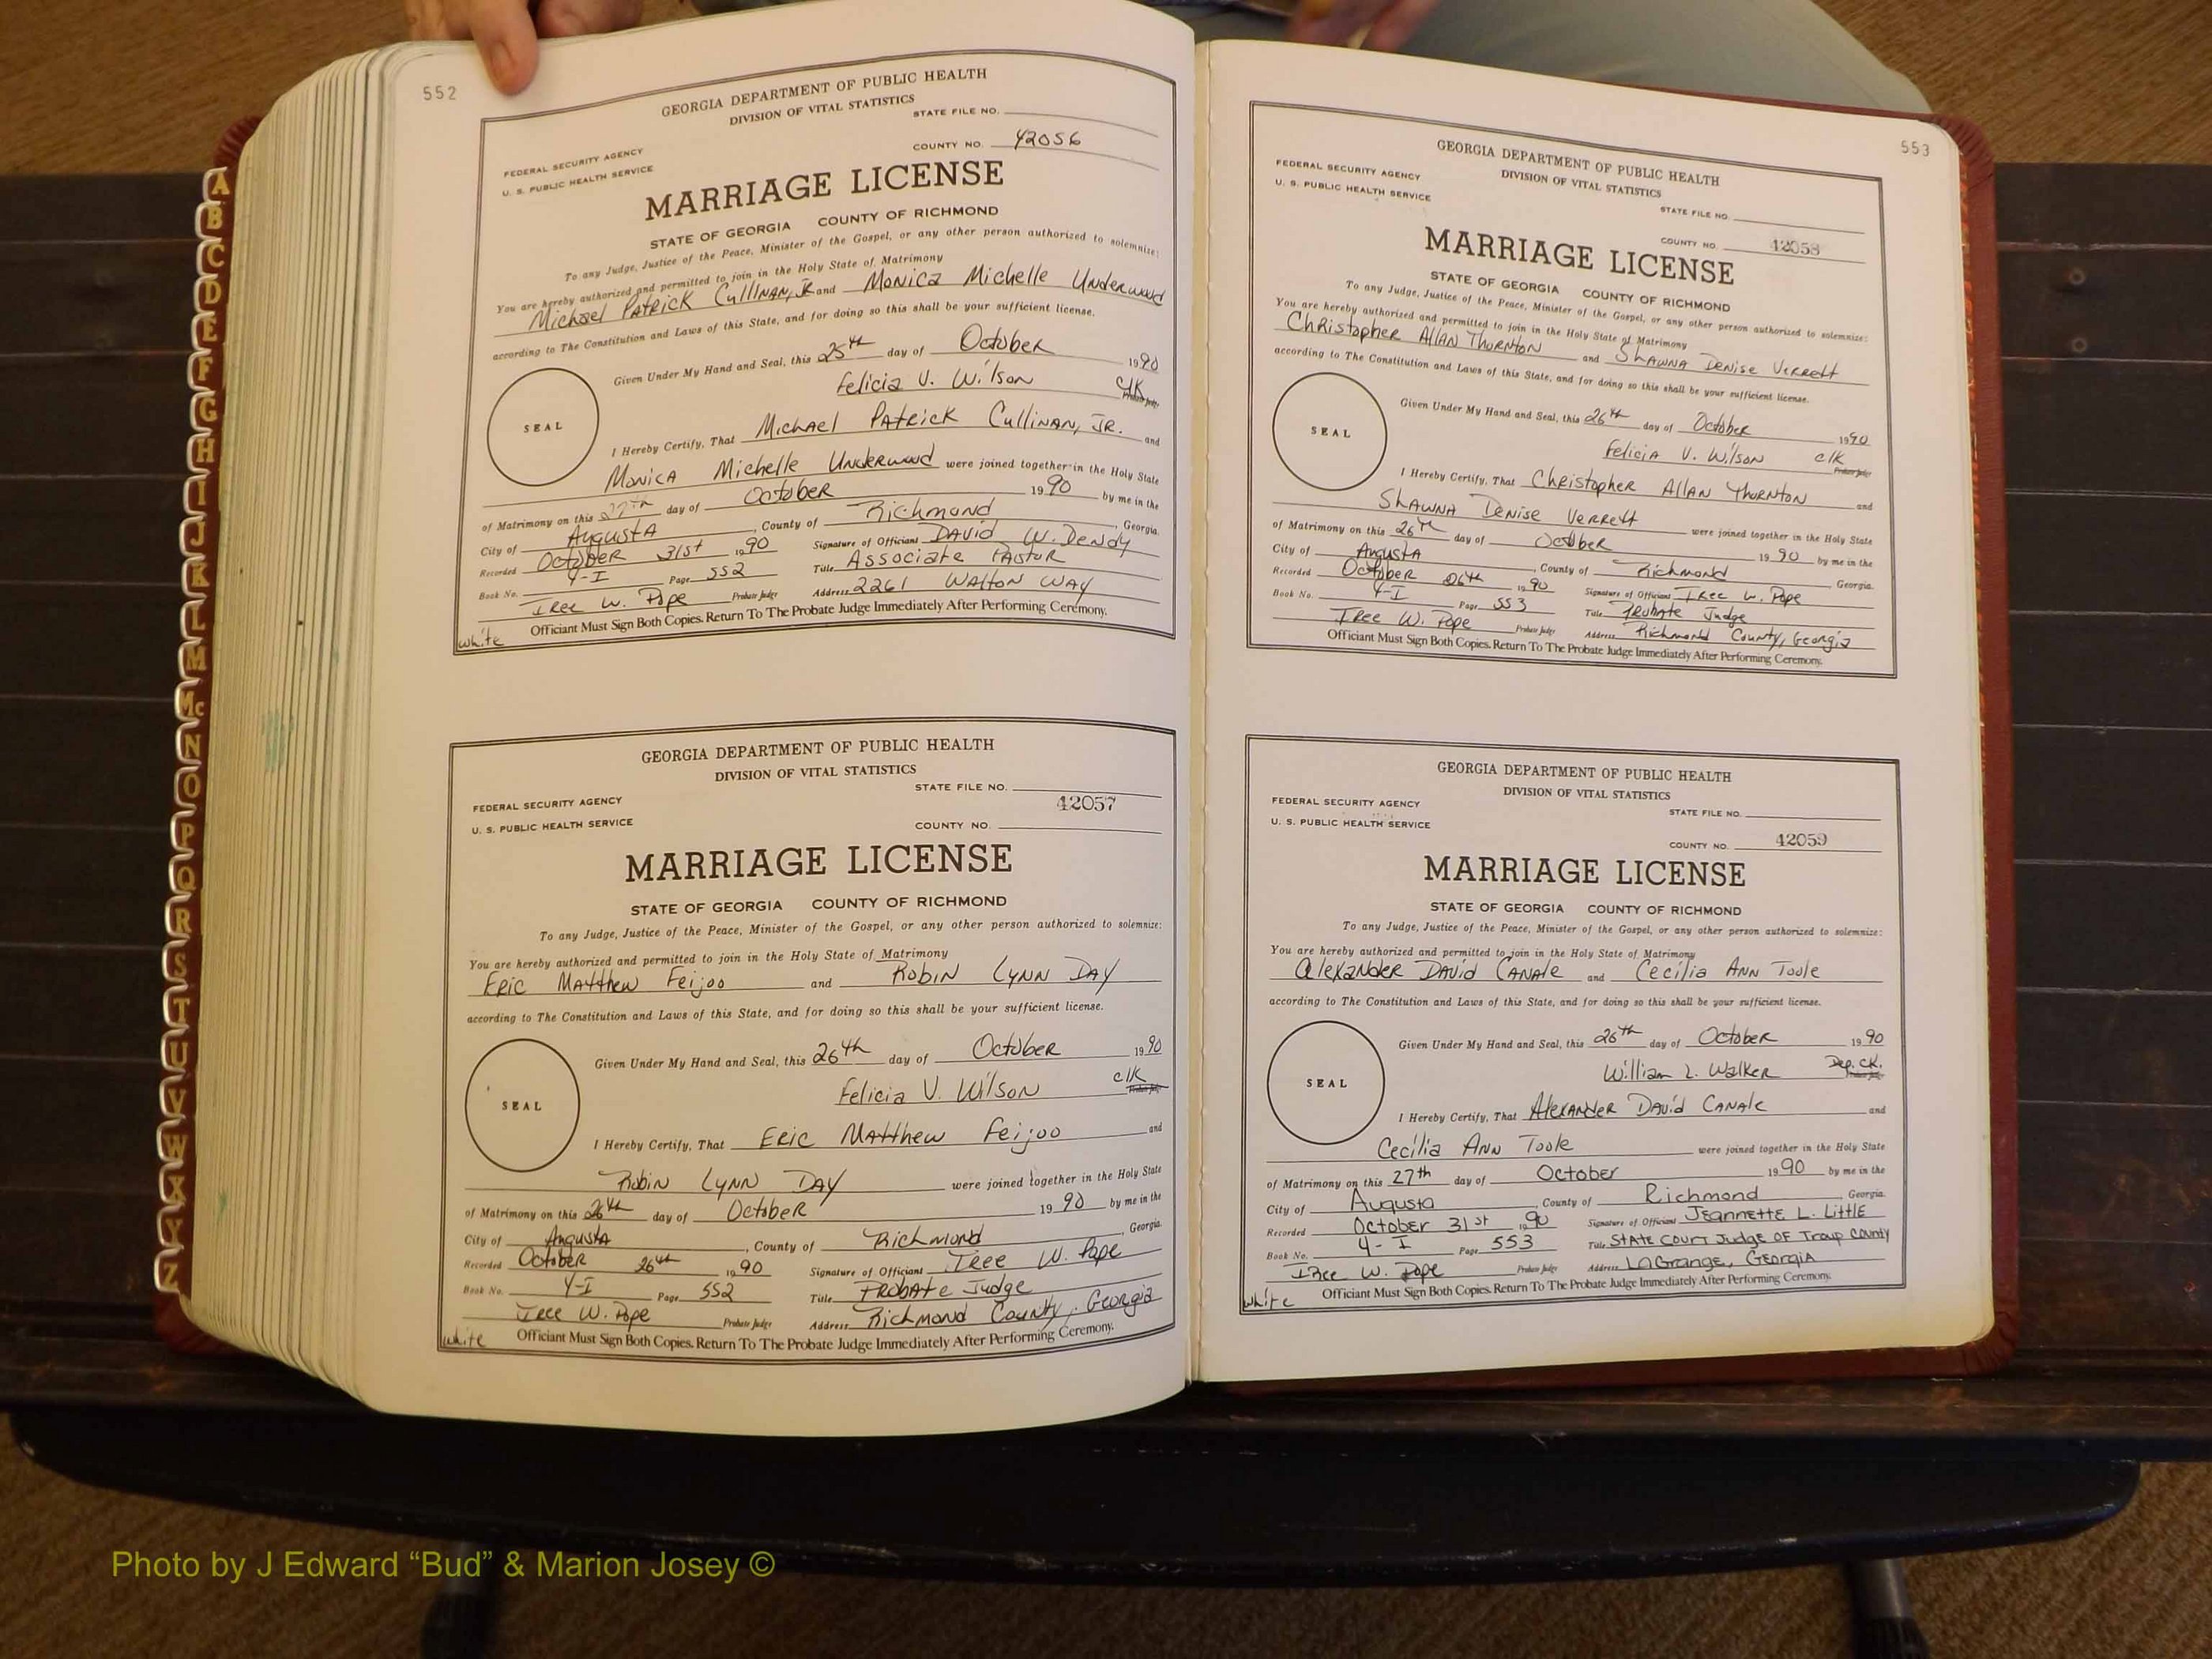 552
GEORGIA DEPARTMENT OF PUBLIC HEALTH
DIVISION OF VITAL STATISTICS
STATE FILE NO.
FEDERAL SECURITY AGENCY
U. S. PUBLIC HEALTH SERVICE
COUNTY NO. 42056
MARRIAGE LICENSE
STATE OF GEORGIA COUNTY OF RICHMOND
To any Judge, Justice of the Peace, Minister of the Gospel, or any other person authorized to solemnize:
You are hereby authorized and permitted to join in the Holy State of Matrimony
Michael Patrick Cullinan, Jr and Monica Michelle Underwood
according to The Constitution and Laws of this State, and for doing so this shall be your sufficient license.
Given Under My Hand and Seal, this 25th day of October 1990
Felicia V. Wilson Clk
Probate Judge
SEAL
I Hereby Certify, That Michael Patrick Cullinan, JR. and
Monica Michelle Underwood were joined together in the Holy State
of Matrimony on this 27th day of October 1990 by me in the
City of Augusta, County of Richmond, Georgia.
Recorded October 31st 1990 Signature of Officiant David W. Dendy
Book No. 4-I Page 552 Title Associate Pastor
Iree W. Pope Probate Judge Address 2261 Walton Way
white Officiant Must Sign Both Copies. Return To The Probate Judge Immediately After Performing Ceremony.
GEORGIA DEPARTMENT OF PUBLIC HEALTH
DIVISION OF VITAL STATISTICS
STATE FILE NO.
FEDERAL SECURITY AGENCY
U. S. PUBLIC HEALTH SERVICE
COUNTY NO. 42057
MARRIAGE LICENSE
STATE OF GEORGIA COUNTY OF RICHMOND
To any Judge, Justice of the Peace, Minister of the Gospel, or any other person authorized to solemnize:
You are hereby authorized and permitted to join in the Holy State of Matrimony
Eric Matthew Feijoo and Robin Lynn Day
according to The Constitution and Laws of this State, and for doing so this shall be your sufficient license.
Given Under My Hand and Seal, this 26th day of October 1990
Felicia V. Wilson clk
Probate Judge
SEAL
I Hereby Certify, That Eric Matthew Feijoo and
Robin Lynn Day were joined together in the Holy State
of Matrimony on this 26th day of October 1990 by me in the
City of Augusta, County of Richmond, Georgia.
Recorded October 26th 1990 Signature of Officiant Iree W. Pope
Book No. 4-I Page 552 Title Probate Judge
Iree W. Pope Probate Judge Address Richmond County, Georgia
white Officiant Must Sign Both Copies. Return To The Probate Judge Immediately After Performing Ceremony.
553
GEORGIA DEPARTMENT OF PUBLIC HEALTH
DIVISION OF VITAL STATISTICS
FEDERAL SECURITY AGENCY
U. S. PUBLIC HEALTH SERVICE
STATE FILE NO.
COUNTY NO. 42058
MARRIAGE LICENSE
STATE OF GEORGIA COUNTY OF RICHMOND
To any Judge, Justice of the Peace, Minister of the Gospel, or any other person authorized to solemnize:
You are hereby authorized and permitted to join in the Holy State of Matrimony
Christopher Allan Thornton and Shawna Denise Verrett
according to The Constitution and Laws of this State, and for doing so this shall be your sufficient license.
Given Under My Hand and Seal, this 26th day of October 1990
Felicia V. Wilson clk
Probate Judge
SEAL
I Hereby Certify, That Christopher Allan Thornton and
Shawna Denise Verrett were joined together in the Holy State
of Matrimony on this 26th day of October 1990 by me in the
City of Augusta, County of Richmond Georgia.
Recorded October 26th 1990 Signature of Officiant Iree W. Pope
Book No. 4-I Page 553 Title Probate Judge
Iree W. Pope Probate Judge Address Richmond County, Georgia
Officiant Must Sign Both Copies. Return To The Probate Judge Immediately After Performing Ceremony.
GEORGIA DEPARTMENT OF PUBLIC HEALTH
DIVISION OF VITAL STATISTICS
FEDERAL SECURITY AGENCY
U. S. PUBLIC HEALTH SERVICE
STATE FILE NO.
COUNTY NO. 42059
MARRIAGE LICENSE
STATE OF GEORGIA COUNTY OF RICHMOND
To any Judge, Justice of the Peace, Minister of the Gospel, or any other person authorized to solemnize:
You are hereby authorized and permitted to join in the Holy State of Matrimony
Alexander David Canale and Cecilia Ann Toole
according to The Constitution and Laws of this State, and for doing so this shall be your sufficient license.
Given Under My Hand and Seal, this 26th day of October 1990
William L. Walker Dep. Clk.
Probate Judge
SEAL
I Hereby Certify, That Alexander David Canale and
Cecilia Ann Toole were joined together in the Holy State
of Matrimony on this 27th day of October 1990 by me in the
City of Augusta, County of Richmond, Georgia.
Recorded October 31st 1990 Signature of Officiant Jeannette L. Little
Book No. 4-I Page 553 Title State Court Judge of Troup County
Iree W. Pope Probate Judge Address LaGrange, Georgia
white Officiant Must Sign Both Copies. Return To The Probate Judge Immediately After Performing Ceremony.
A
B
C
D
E
F
G
H
I
J
K
L
M
Mc
N
O
P
Q
R
S
T
U
V
W
X
Y
Z
Photo by J Edward “Bud” & Marion Josey ©